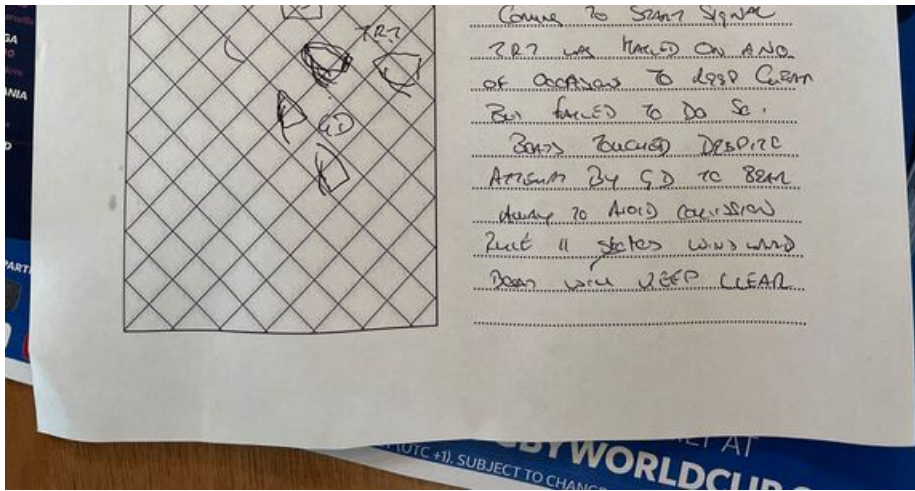 TR7
GD
COMING TO START SIGNAL
TR7 WAS HAILED ON A NO.
OF OCCASIONS TO KEEP CLEAR
BUT FAILED TO DO SO.
BOATS TOUCHED DESPITE
ATTEMPT BY GD TO BEAR
AWAY TO AVOID COLLISSION
RULE 11 states WINDWARD
BOAT WILL KEEP CLEAR
GA
ANIA
D
PARTI
AT
(UTC +1). SUBJECT TO CHANGE
BYWORLDCUP.